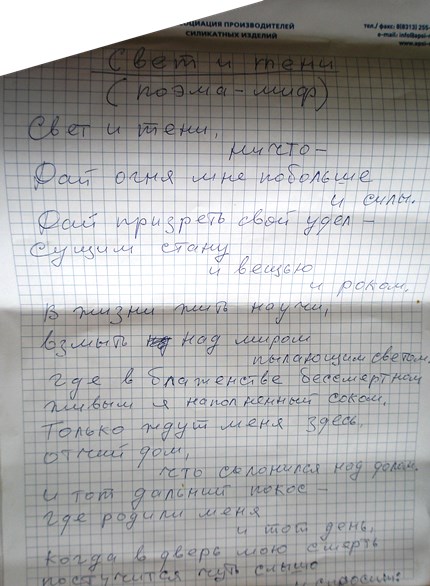 СОЦИАЦИЯ ПРОИЗВОДИТЕЛЕЙ
СИЛИКАТНЫХ ИЗДЕЛИЙ
тел./ факс: 8(8313) 250-
e-mail: info@apsi-
www.apsi-
Свет и тени
(поэма-миф)
Свет и тени,
ничто-
Дай огня мне побольше
и силы.
Дай призреть свой удел -
сущим стану
и вещью
и роком,
В жизни жить научи,
взмыть над миром
пылающим светом.
где в блаженстве бессмертном
живым я наполненный соком.
Только ждут меня здесь,
отчий дом,
что склонился над долом.
и тот дальний покос -
где родили меня
и тот день,
когда в дверь мою смерть
постучится чуть слышно